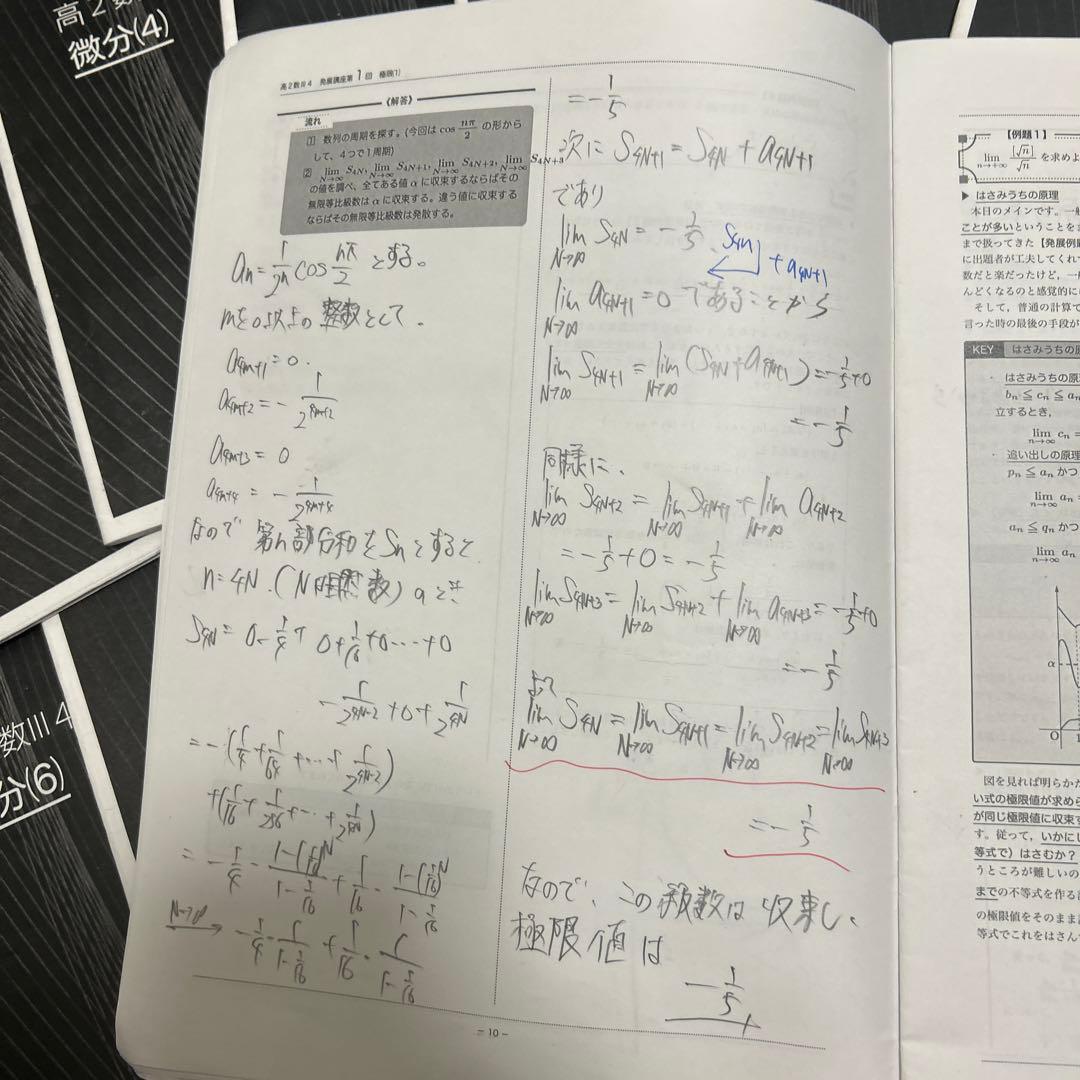 高2数
微分(4)
数III 4
分(6)
高2数III 4 発展講座第1回 極限(1)
《解答》
流れ
① 数列の周期を探す。(今回は cos nπ/2 の形から
して、4つで1周期)
② lim N→∞ S4N, lim N→∞ S4N+1, lim N→∞ S4N+2, lim N→∞ S4N+3
の値を調べ、全てある値 α に収束するならばその
無限等比級数は α に収束する。違う値に収束する
ならばその無限等比級数は発散する。
an = 1/2^n cos nπ/2 とする。
mを0以上の整数として。
a4m+1 = 0.
a4m+2 = - 1/2^(4m+2)
a4m+3 = 0
a4m+4 = - 1/2^(4m+4)
なので 第n部分和をSnとすると
n=4N.(Nは自然数)のとき
S4N = 0 - 1/4 + 0 + 1/16 + 0 ... + 0
- 1/2^(4N-2) + 0 + 1/2^(4N)
= -(1/4 + 1/64 + ... + 1/2^(4N-2))
+(1/16 + 1/256 + ... + 1/2^(4N))
= - 1/4 · (1-(1/16)^N)/(1-1/16) + 1/16 · (1-(1/16)^N)/(1-1/16)
N→∞ → - 1/4 · 1/(1-1/16) + 1/16 · 1/(1-1/16)
= - 1/5
次に S4N+1 = S4N + a4N+1
であり
lim N→∞ S4N = - 1/5. S4N + a4N+1
lim N→∞ a4N+1 = 0 であることから
lim N→∞ S4N+1 = lim N→∞ (S4N + a4N+1) = - 1/5 + 0
= - 1/5
同様に、
lim N→∞ S4N+2 = lim N→∞ S4N+1 + lim N→∞ a4N+2
= - 1/5 + 0 = - 1/5
lim N→∞ S4N+3 = lim N→∞ S4N+2 + lim N→∞ a4N+3 = - 1/5 + 0
= - 1/5
よって
lim N→∞ S4N = lim N→∞ S4N+1 = lim N→∞ S4N+2 = lim N→∞ S4N+3
= - 1/5
なので、この級数は収束し、
極限値は
- 1/5
- 10 -
【例題1】
lim n→+∞ [√n]/√n を求めよ
▶ はさみうちの原理
本日のメインです。一般
ことが多いということを
まで扱ってきた【発展例題
に出題者が工夫してくれて
数だと楽だったけど、一般
んどくなるのと感覚的に
そして、普通の計算で
言った時の最後の手段が
KEY はさみうちの原
・ はさみうちの原
bn ≦ cn ≦ an
立するとき、
lim n→∞ cn =
・ 追い出しの原理
pn ≦ an かつ
lim n→∞ an =
an ≦ qn かつ
lim n→∞ an
α
O
図を見れば明らかだ
い式の極限値が求めら
が同じ極限値に収束す
す。従って、いかにし
等式で)はさむか?
うところが難しいの
までの不等式を作る
の極限値をそのまま
等式でこれをはさん